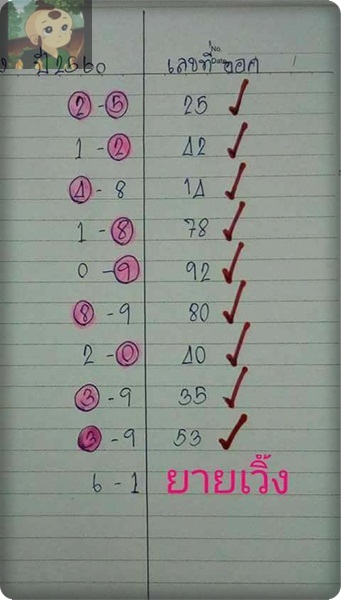 ปี2560 เลขที่ออก
No.
Date
2-5 25
1-2 42
4-8 14
1-8 78
0-9 92
8-9 80
2-0 40
3-9 35
3-9 53
6-1 ยายเวิ้ง